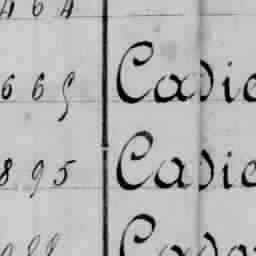 464
665 Cadie
895 Cadie